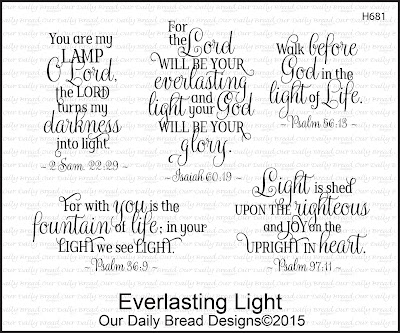 H681
You are my
LAMP
O Lord,
the LORD
turns my
darkness
into light.
~ 2 Sam. 22:29 ~
For
the Lord
WILL BE YOUR
everlasting
and
light your God
WILL BE YOUR
glory.
~ Isaiah 60:19 ~
Walk before
God in the
light of Life.
~ Psalm 56:13 ~
For with you is the
fountain of life; in your
LIGHT we see LIGHT.
~ Psalm 36:9 ~
Light is shed
UPON THE righteous
and JOY on the
UPRIGHT in heart.
~ Psalm 97:11 ~
Everlasting Light
Our Daily Bread Designs©2015